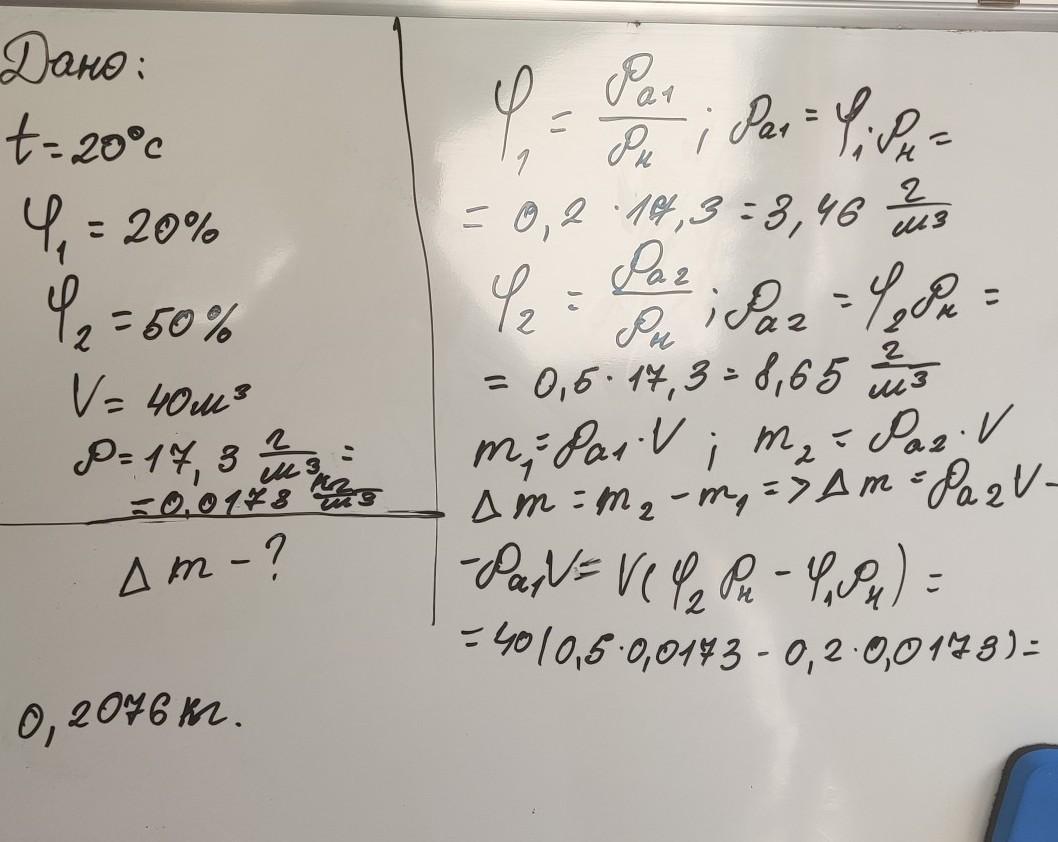 Дано:
t = 20°C
φ₁ = 20%
φ₂ = 50%
V = 40 м³
ρ = 17,3 г/м³ =
= 0,0173 кг/м³
Δm - ?
φ₁ = ρa1/ρн ; ρa1 = φ₁·ρн =
= 0,2 · 17,3 = 3,46 г/м³
φ₂ = ρa2/ρн ; ρa2 = φ₂ρн =
= 0,5 · 17,3 = 8,65 г/м³
m₁ = ρa1·V ; m₂ = ρa2·V
Δm = m₂ - m₁ => Δm = ρa2V -
- ρa1V = V(φ₂ρн - φ₁ρн) =
= 40(0,5·0,0173 - 0,2·0,0173) =
0,2076 кг.